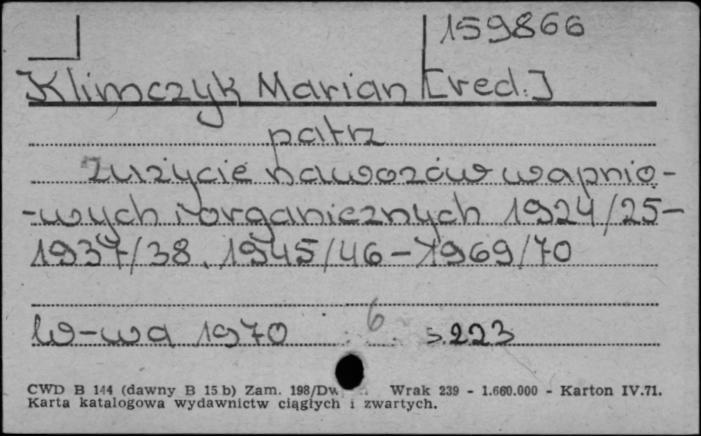 159866
Klimczyk Marian [red.]
patrz
Zużycie nawozów wapnio-
-wych i organicznych 1924/25-
1937/38, 1945/46-1969/70
W-wa 1970 6 s.223
CWD B 144 (dawny B 15 b) Zam. 198/Dw. Wrak 239 - 1.660.000 - Karton IV.71.
Karta katalogowa wydawnictw ciągłych i zwartych.